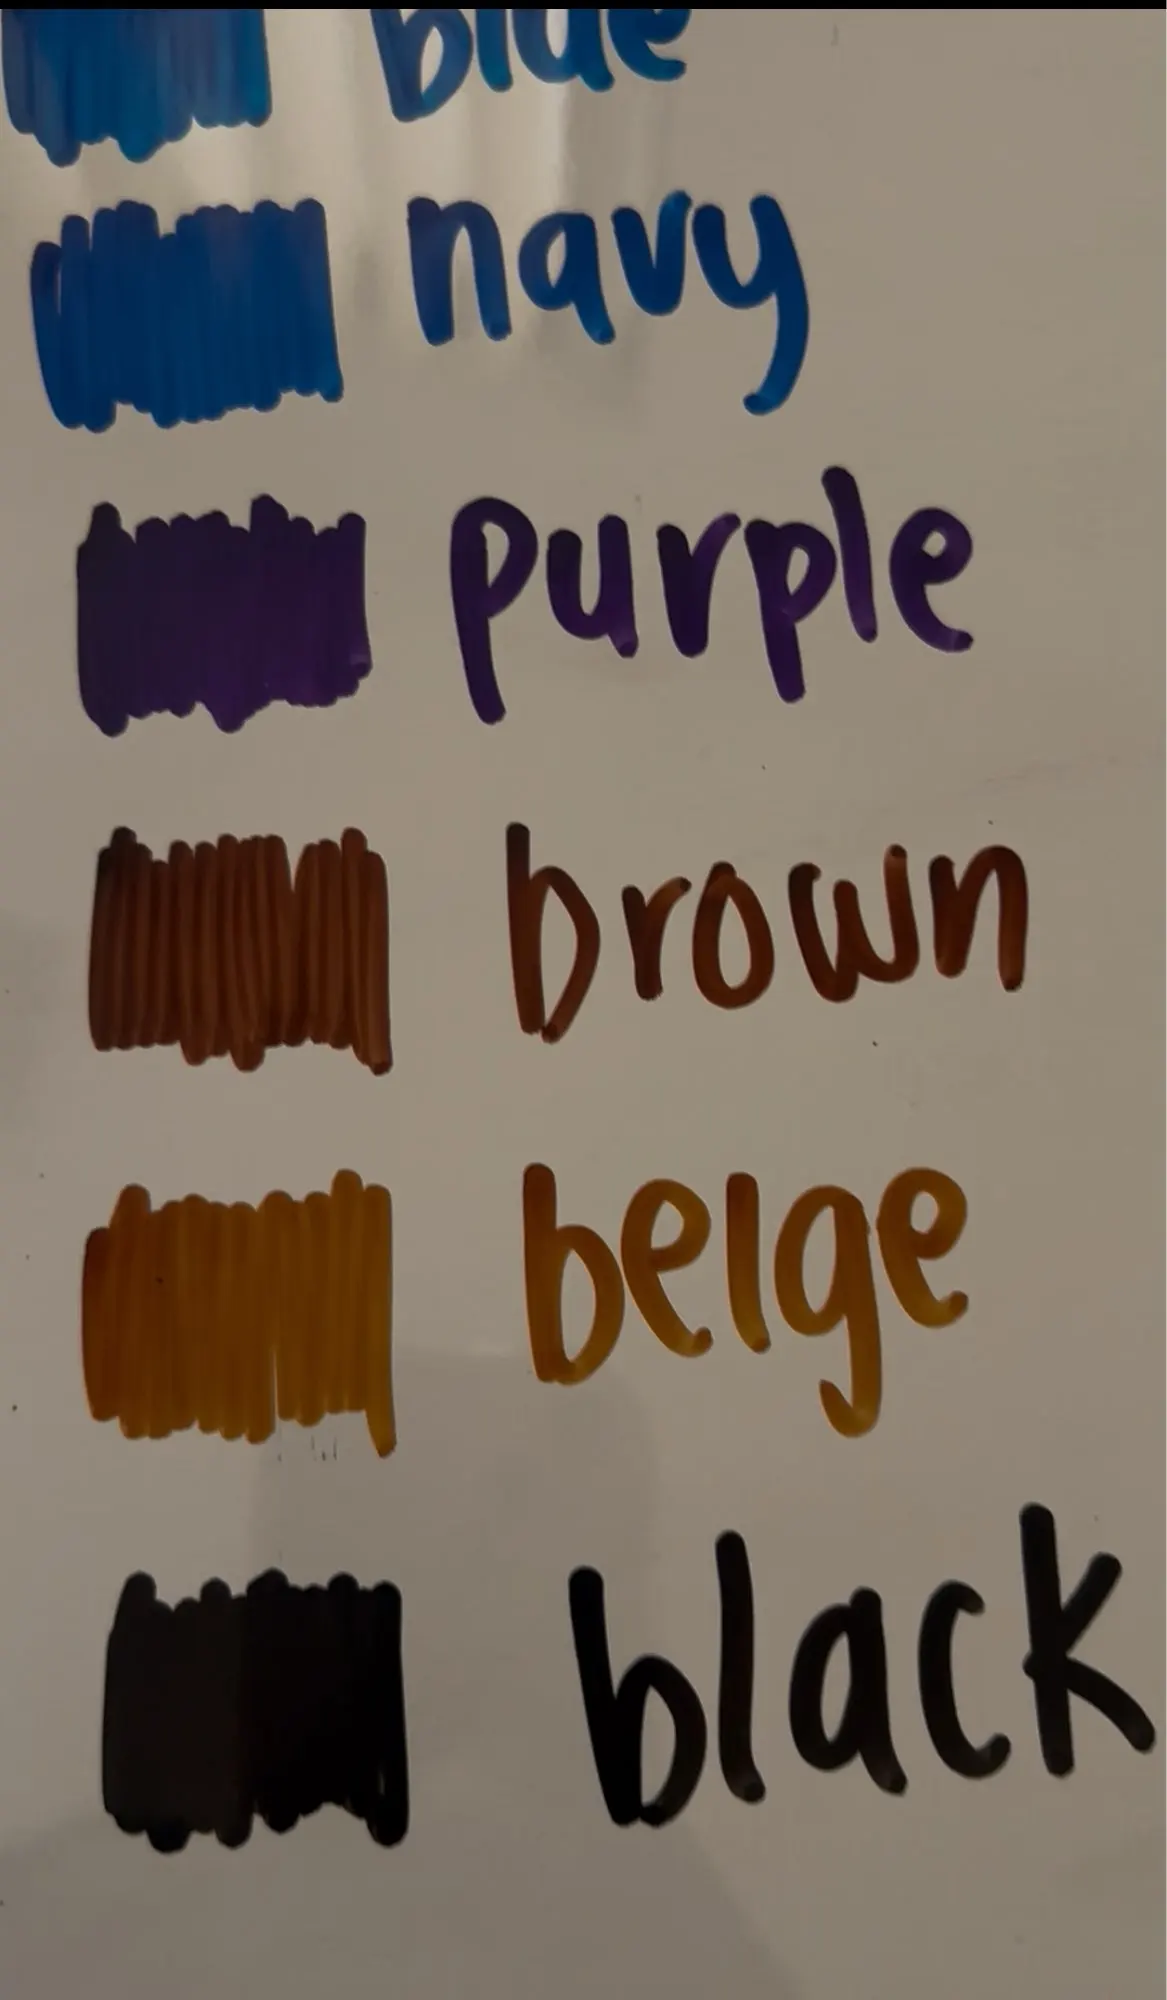 blue
navy
purple
brown
beige
black